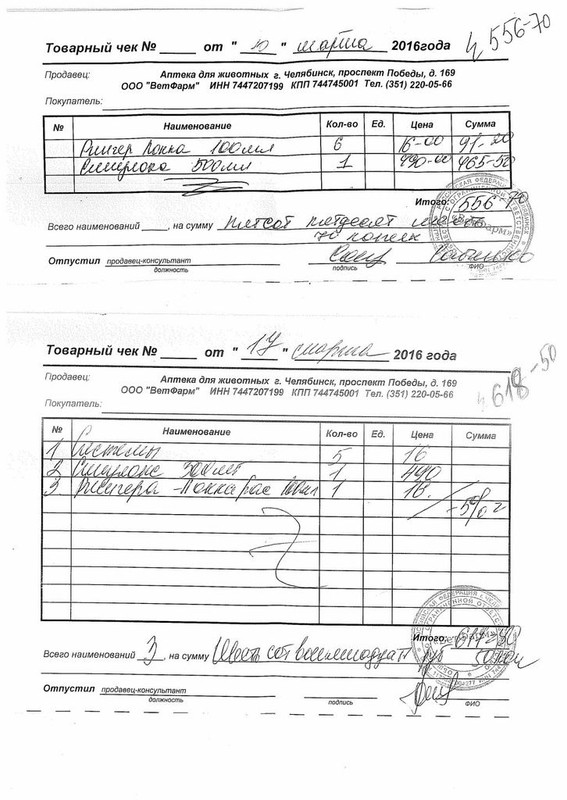 Товарный чек № от " " марта 2016года
ч 556-70
Продавец: Аптека для животных г. Челябинск, проспект Победы, д. 169
ООО "ВетФарм" ИНН 7447207199 КПП 744745001 Тел. (351) 220-05-66
Покупатель:
№ Наименование Кол-во Ед. Цена Сумма
Рингер Локка 100мл 6 16-00 91-20
500мл 1 490-00 465-50
Итого: 556-70
Всего наименований , на сумму Пятсот пятдесят
70 копеек
Отпустил продавец-консультант
должность подпись ФИО
Товарный чек № от " 17 " марта 2016 года
Продавец: Аптека для животных г. Челябинск, проспект Победы, д. 169
ч 618-50
ООО "ВетФарм" ИНН 7447207199 КПП 744745001 Тел. (351) 220-05-66
Покупатель:
№ Наименование Кол-во Ед. Цена Сумма
1 Системы 5 16
2 1
3 Рингера-Локка 1 16.
-5%
Итого:
Всего наименований 3 , на сумму Шесть сот восемнадцать руб 50 коп
Отпустил продавец-консультант
должность подпись ФИО